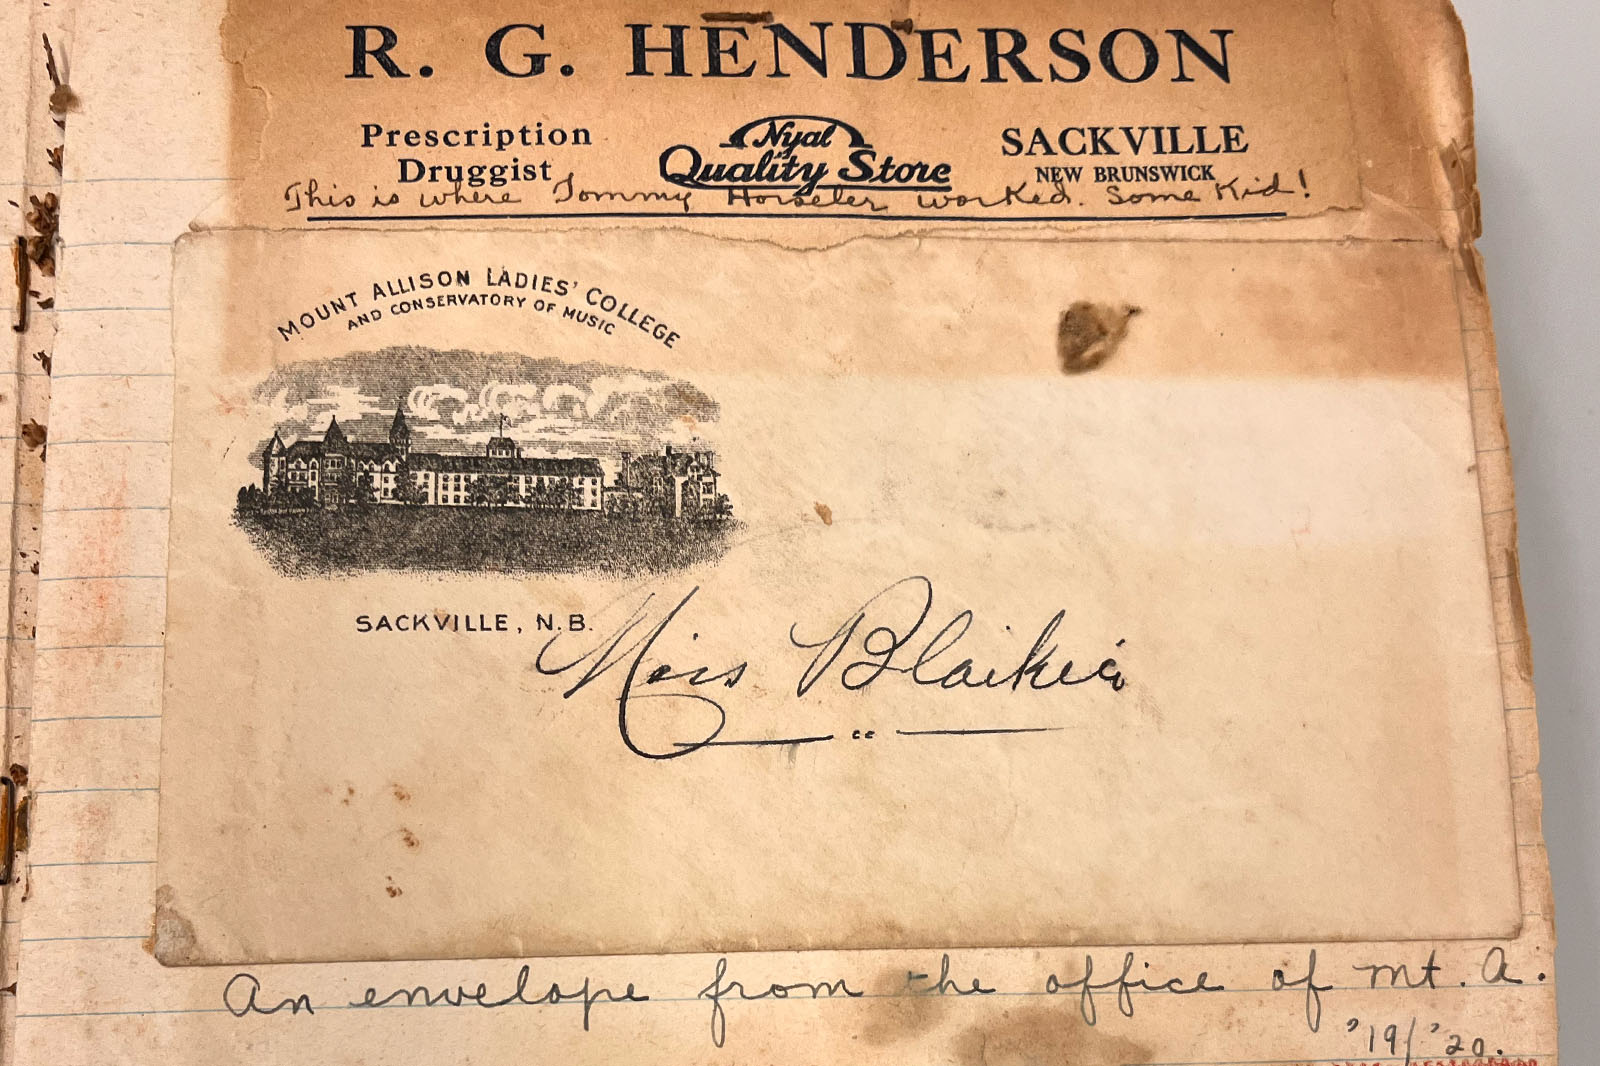 R. G. HENDERSON
Prescription Druggist
Nyal Quality Store
SACKVILLE
NEW BRUNSWICK
This is where Tommy Horseler worked. Some Kid!
MOUNT ALLISON LADIES' COLLEGE
AND CONSERVATORY OF MUSIC
SACKVILLE, N.B.
Miss Blaikie
An envelope from the office of Mt. A.
'19/'20.